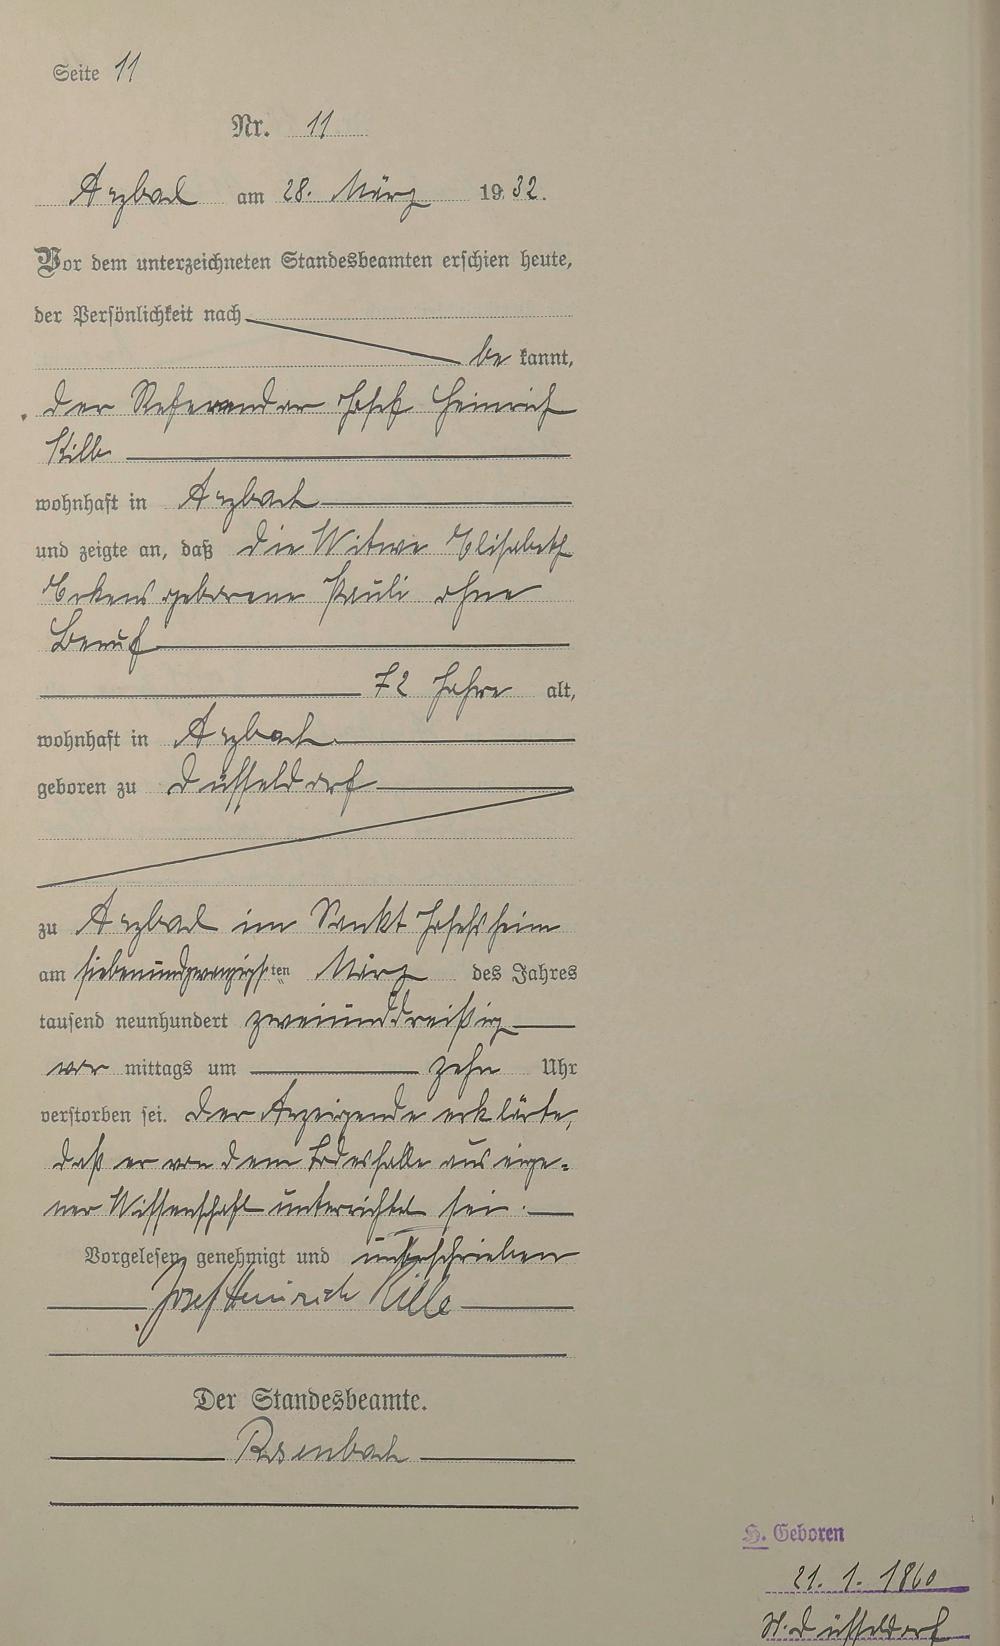 Seite 11
Nr. 11
Arzbach am 28. März 1932.
Vor dem unterzeichneten Standesbeamten erschien heute,
der Persönlichkeit nach
be kannt,
der Referendar Josef Heinrich
Kilb
wohnhaft in Arzbach
und zeigte an, daß die Witwe Elisabeth
Erkens geborene Pauli ohne
Beruf
72 Jahre alt,
wohnhaft in Arzbach
geboren zu Düsseldorf
zu Arzbach im Sankt Josefsheim
am siebenundzwanzigsten März des Jahres
tausend neunhundert zweiunddreißig
vor mittags um zehn Uhr
verstorben sei. Der Anzeigende erklärte,
daß er von dem Todesfalle aus eige-
ner Wissenschaft unterrichtet sei.
Vorgelesen, genehmigt und unterschrieben
Josef Heinrich
Der Standesbeamte.
H. Geboren
21. 1. 1860
Düsseldorf